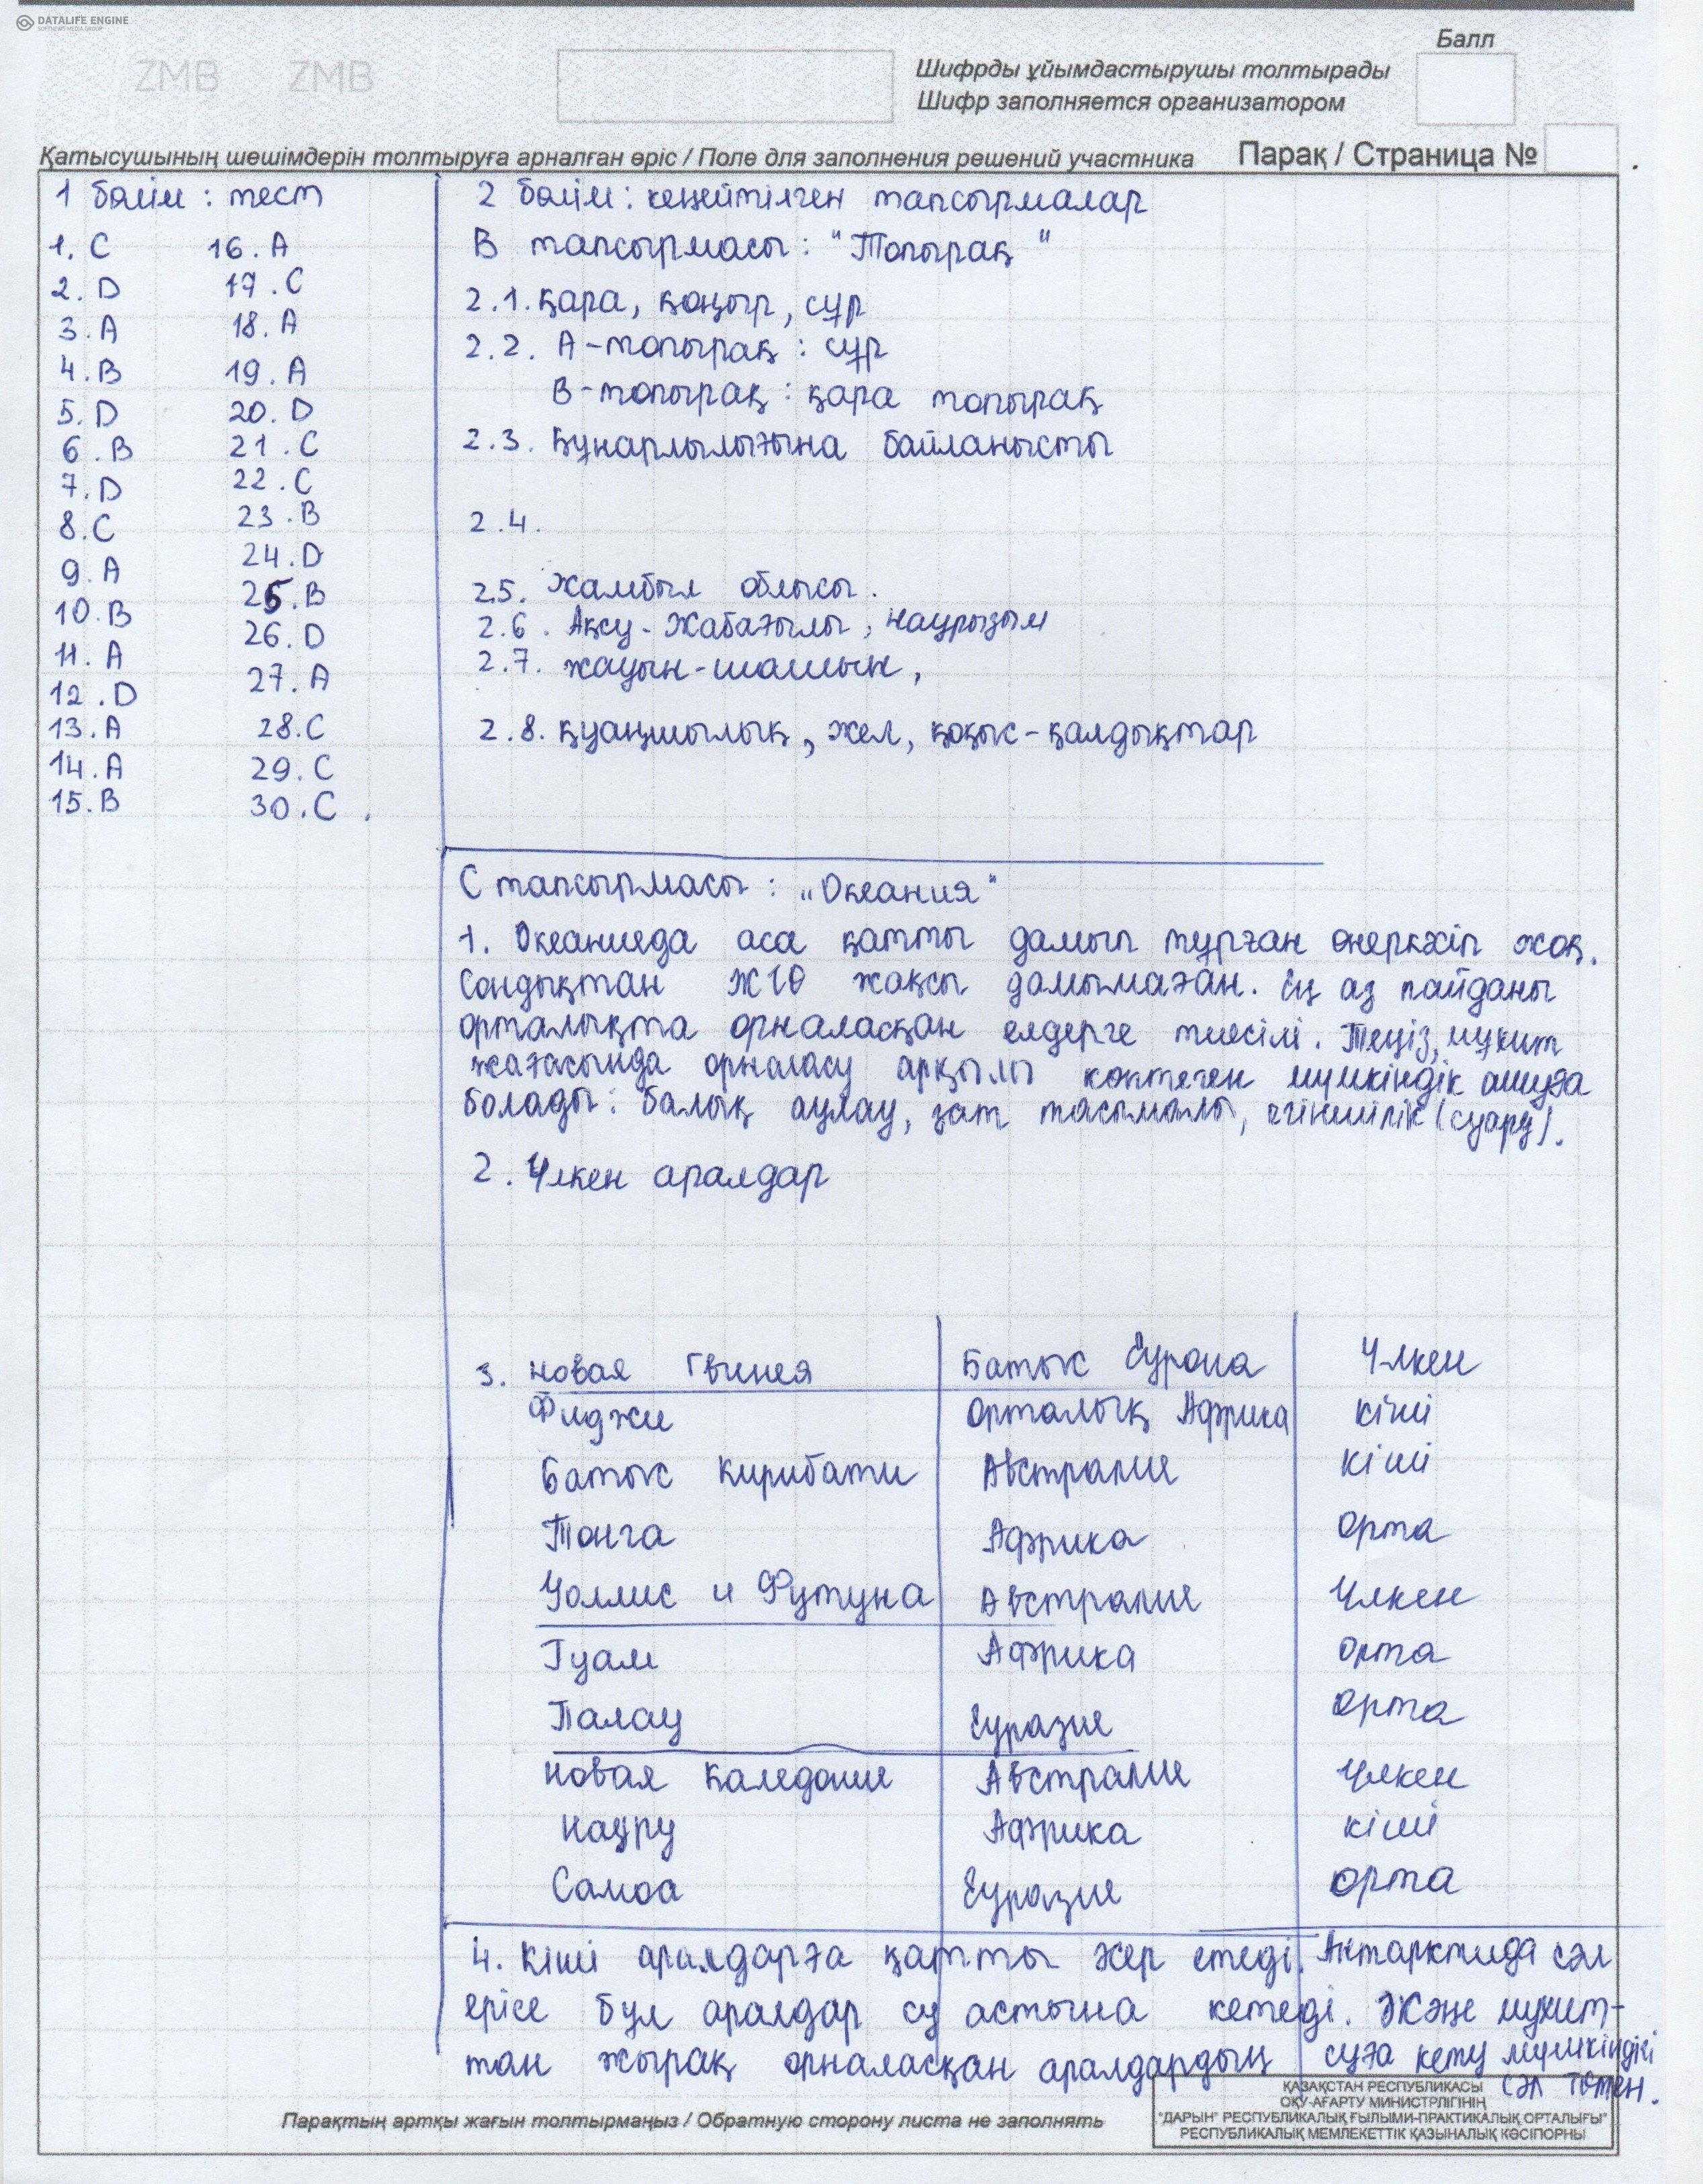 DATALIFE ENGINE
SOFTNEWS MEDIA GROUP
ZMB ZMB
Балл
Шифрды ұйымдастырушы толтырады
Шифр заполняется организатором
Қатысушының шешімдерін толтыруға арналған өріс / Поле для заполнения решений участника Парақ / Страница №
1 бөлім : тест
1. C 16. A
2. D 17. C
3. A 18. A
4. B 19. A
5. D 20. D
6. B 21. C
7. D 22. C
8. C 23. B
9. A 24. D
10. B 25. B
11. A 26. D
12. D 27. A
13. A 28. C
14. A 29. C
15. B 30. C.
2 бөлім: кеңейтілген тапсырмалар
В тапсырмасы: "Топырақ"
2.1. қара, қоңыр, сұр
2.2. А-топырақ : сұр
В-топырақ : қара топырақ
2.3. Құнарлылығына байланысты
2.4.
2.5. Жамбыл облысы.
2.6. Ақсу-Жабағылы, Наурызым
2.7. жауын-шашын,
2.8. қуаңшылық, жел, қоқыс-қалдықтар
С тапсырмасы: „Океания"
1. Океанияда аса қатты дамып тұрған өнеркәсіп жоқ.
Сондықтан ЖІӨ жақсы дамымаған. Ең аз пайданы
орталықта орналасқан елдерге тиесілі. Теңіз, мұхит
жағасында орналасу арқылы көптеген мүмкіндік ашуға
болады: балық аулау, зат тасымалы, егіншілік (суару).
2. Үлкен аралдар
3. Новая Гвинея Батыс Еуропа Үлкен
Фиджи Орталық Африка кіші
Батыс Кирибати Австралия кіші
Тонга Африка орта
Уоллис и Футуна Австралия Үлкен
Гуам Африка орта
Палау Еуразия орта
Новая Каледония Австралия Үлкен
Науру Африка кіші
Самоа Еуразия орта
4. Кіші аралдарға қатты әсер етеді. Антарктида сәл
ерісе бұл аралдар су астына кетеді. Және мұхит-
тан жырақ орналасқан аралдардың суға кету мүмкіндігі
сәл төмен.
Парақтың артқы жағын толтырмаңыз / Обратную сторону листа не заполнять
ҚАЗАҚСТАН РЕСПУБЛИКАСЫ
ОҚУ-АҒАРТУ МИНИСТРЛІГІНІҢ
"ДАРЫН" РЕСПУБЛИКАЛЫҚ ҒЫЛЫМИ-ПРАКТИКАЛЫҚ ОРТАЛЫҒЫ"
РЕСПУБЛИКАЛЫҚ МЕМЛЕКЕТТІК ҚАЗЫНАЛЫҚ КӘСІПОРНЫ